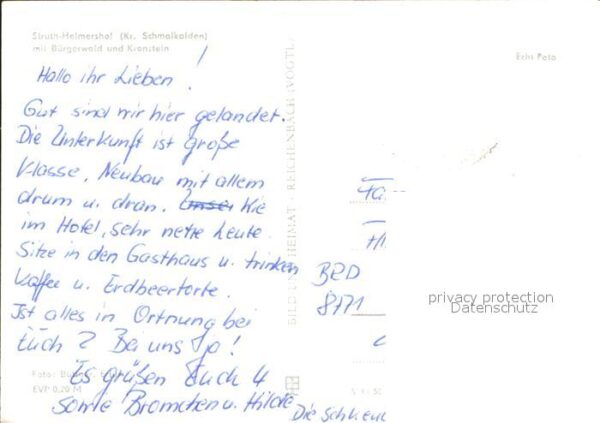 Struth-Helmershof (Kr. Schmalkalden)
mit Bürgerwald und Kronstein
Echt Foto
Hallo ihr Lieben!
Gut sind wir hier gelandet.
Die Unterkunft ist große
Klasse. Neubau mit allem
drum u. dran. Unser Wie
im Hotel, sehr nette Leute.
Sitze in den Gasthaus u. trinken
Kaffee u. Erdbeertorte.
Ist alles in Ortnung bei
Euch? Bei uns ja!
Es grüßen Euch 4
sowie u. Hilde
BILD UND HEIMAT · REICHENBACH (VOGTL)
Foto:
EVP 0,20 M
Fa
BRD
8171
privacy protection
Datenschutz
Die